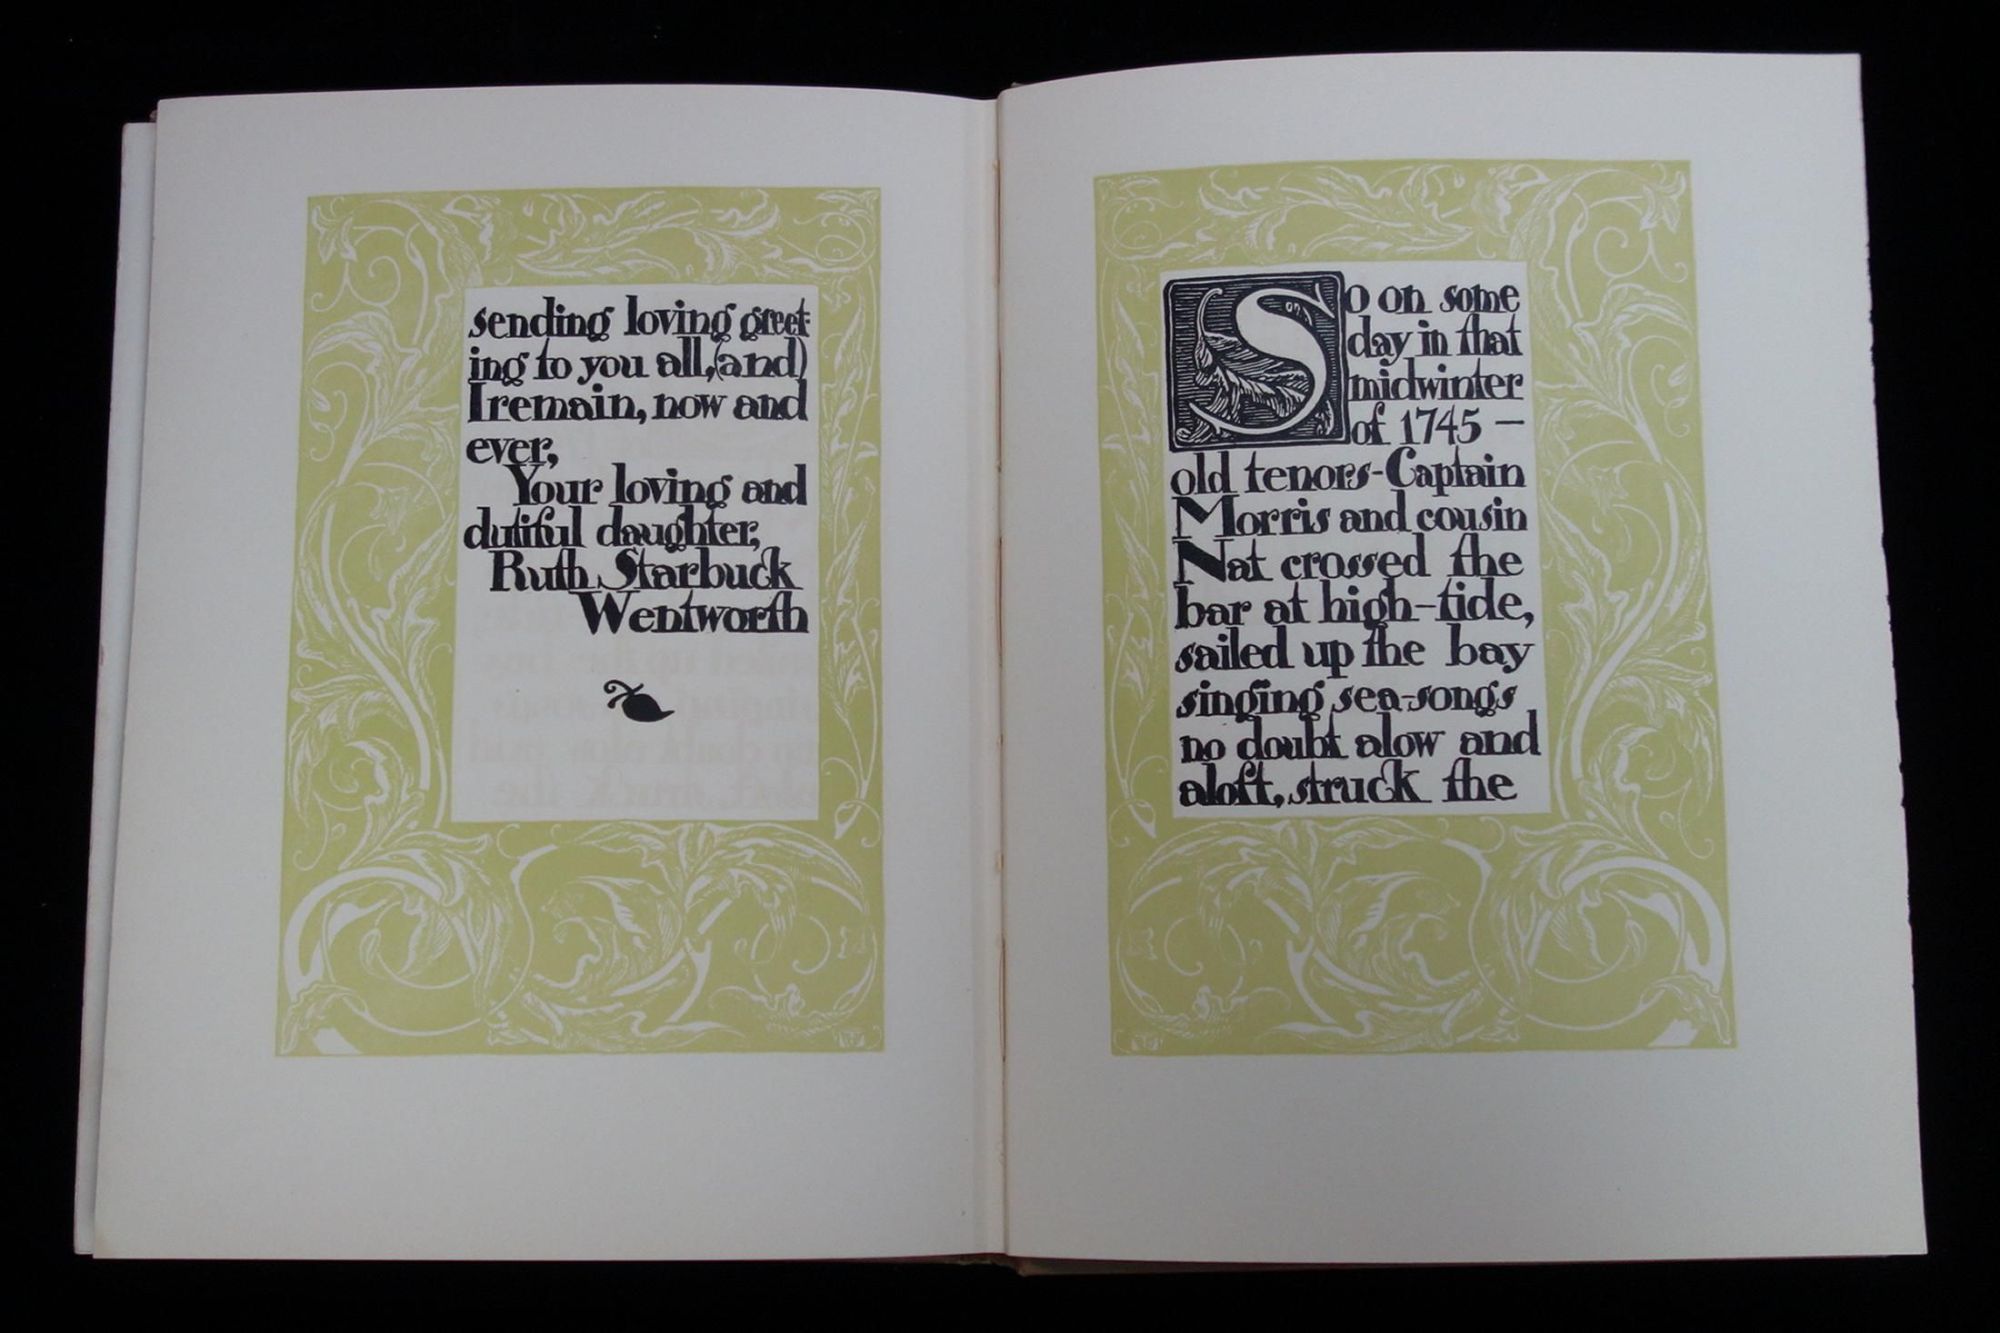 sending loving greet-
ing to you all, (and)
I remain, now and
ever,
Your loving and
dutiful daughter,
Ruth Starbuck
Wentworth
So on some
day in that
midwinter
of 1745 —
old tenors-Captain
Morris and cousin
Nat crossed the
bar at high-tide,
sailed up the bay
singing sea-songs
no doubt alow and
aloft, struck the